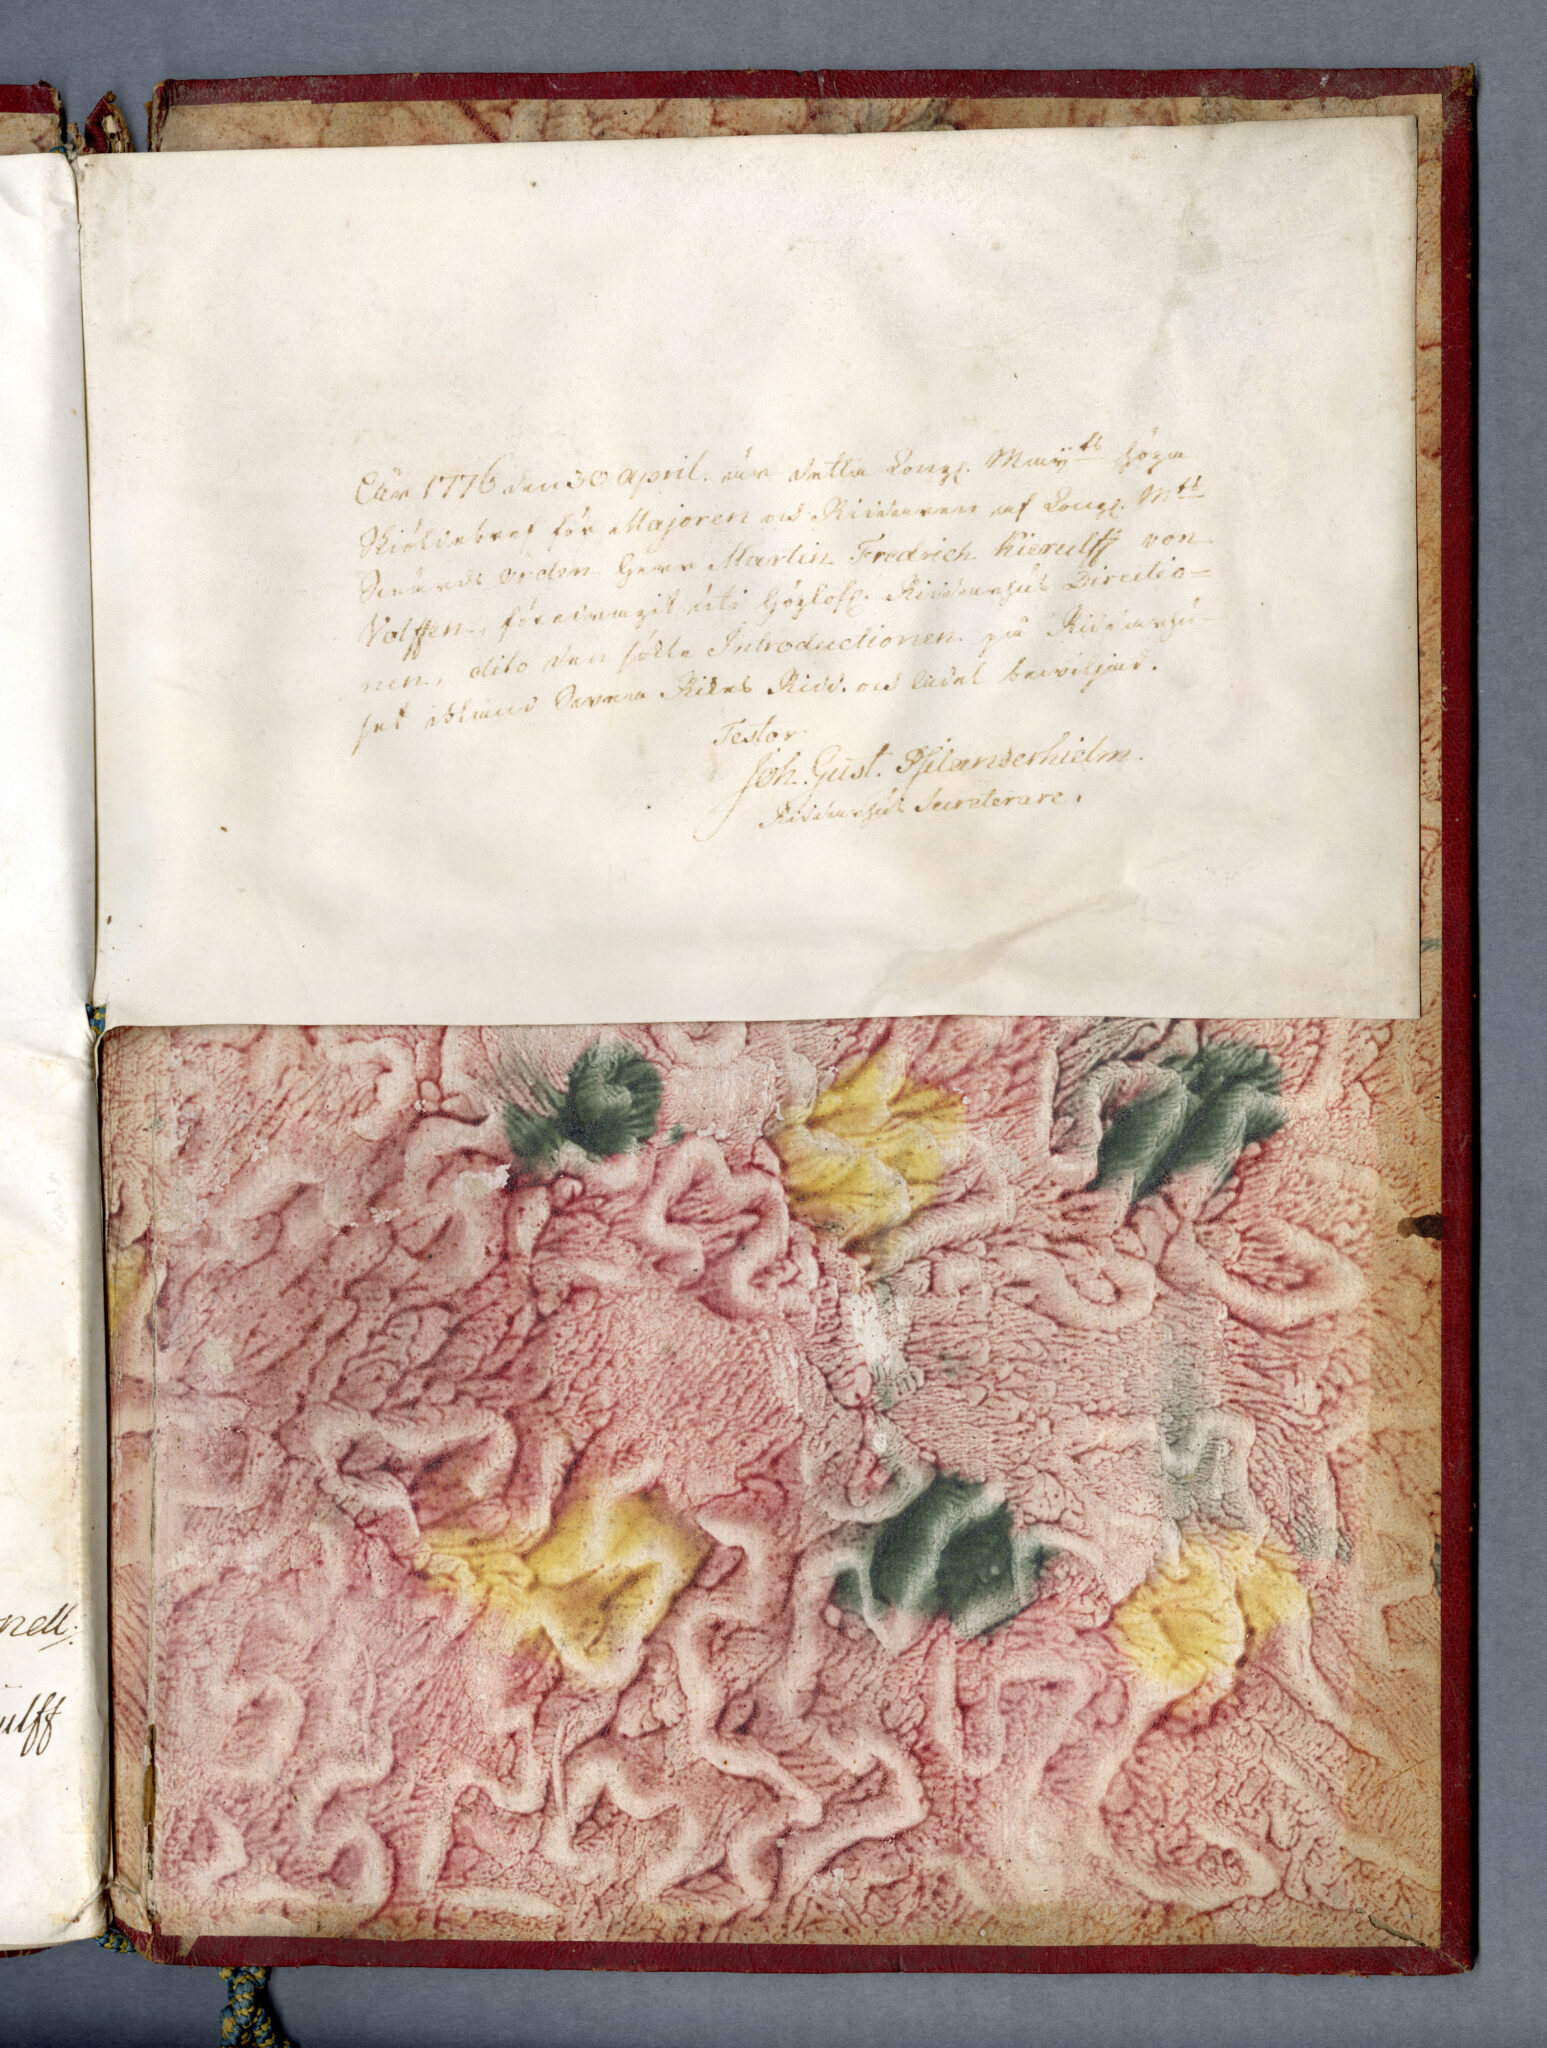 Åhr 1776 den 30 April. är detta Kongl. Maij:tts höga
Sköldebref för Majoren och Riddaren af Kongl. M:tts
Swärds Orden Herr Martin Fredrich Kierulff von
Wolffen, föredragit uti Höglofl. Riddarhus Directio=
nen, och den sökte Introductionen på Riddarhu-
set ibland Swea Rikes Ridd. och Adel bewiljad.
Testor
Joh. Gust. Psilanderhielm.
Riddarhus Secreterare.
nell.
ulff